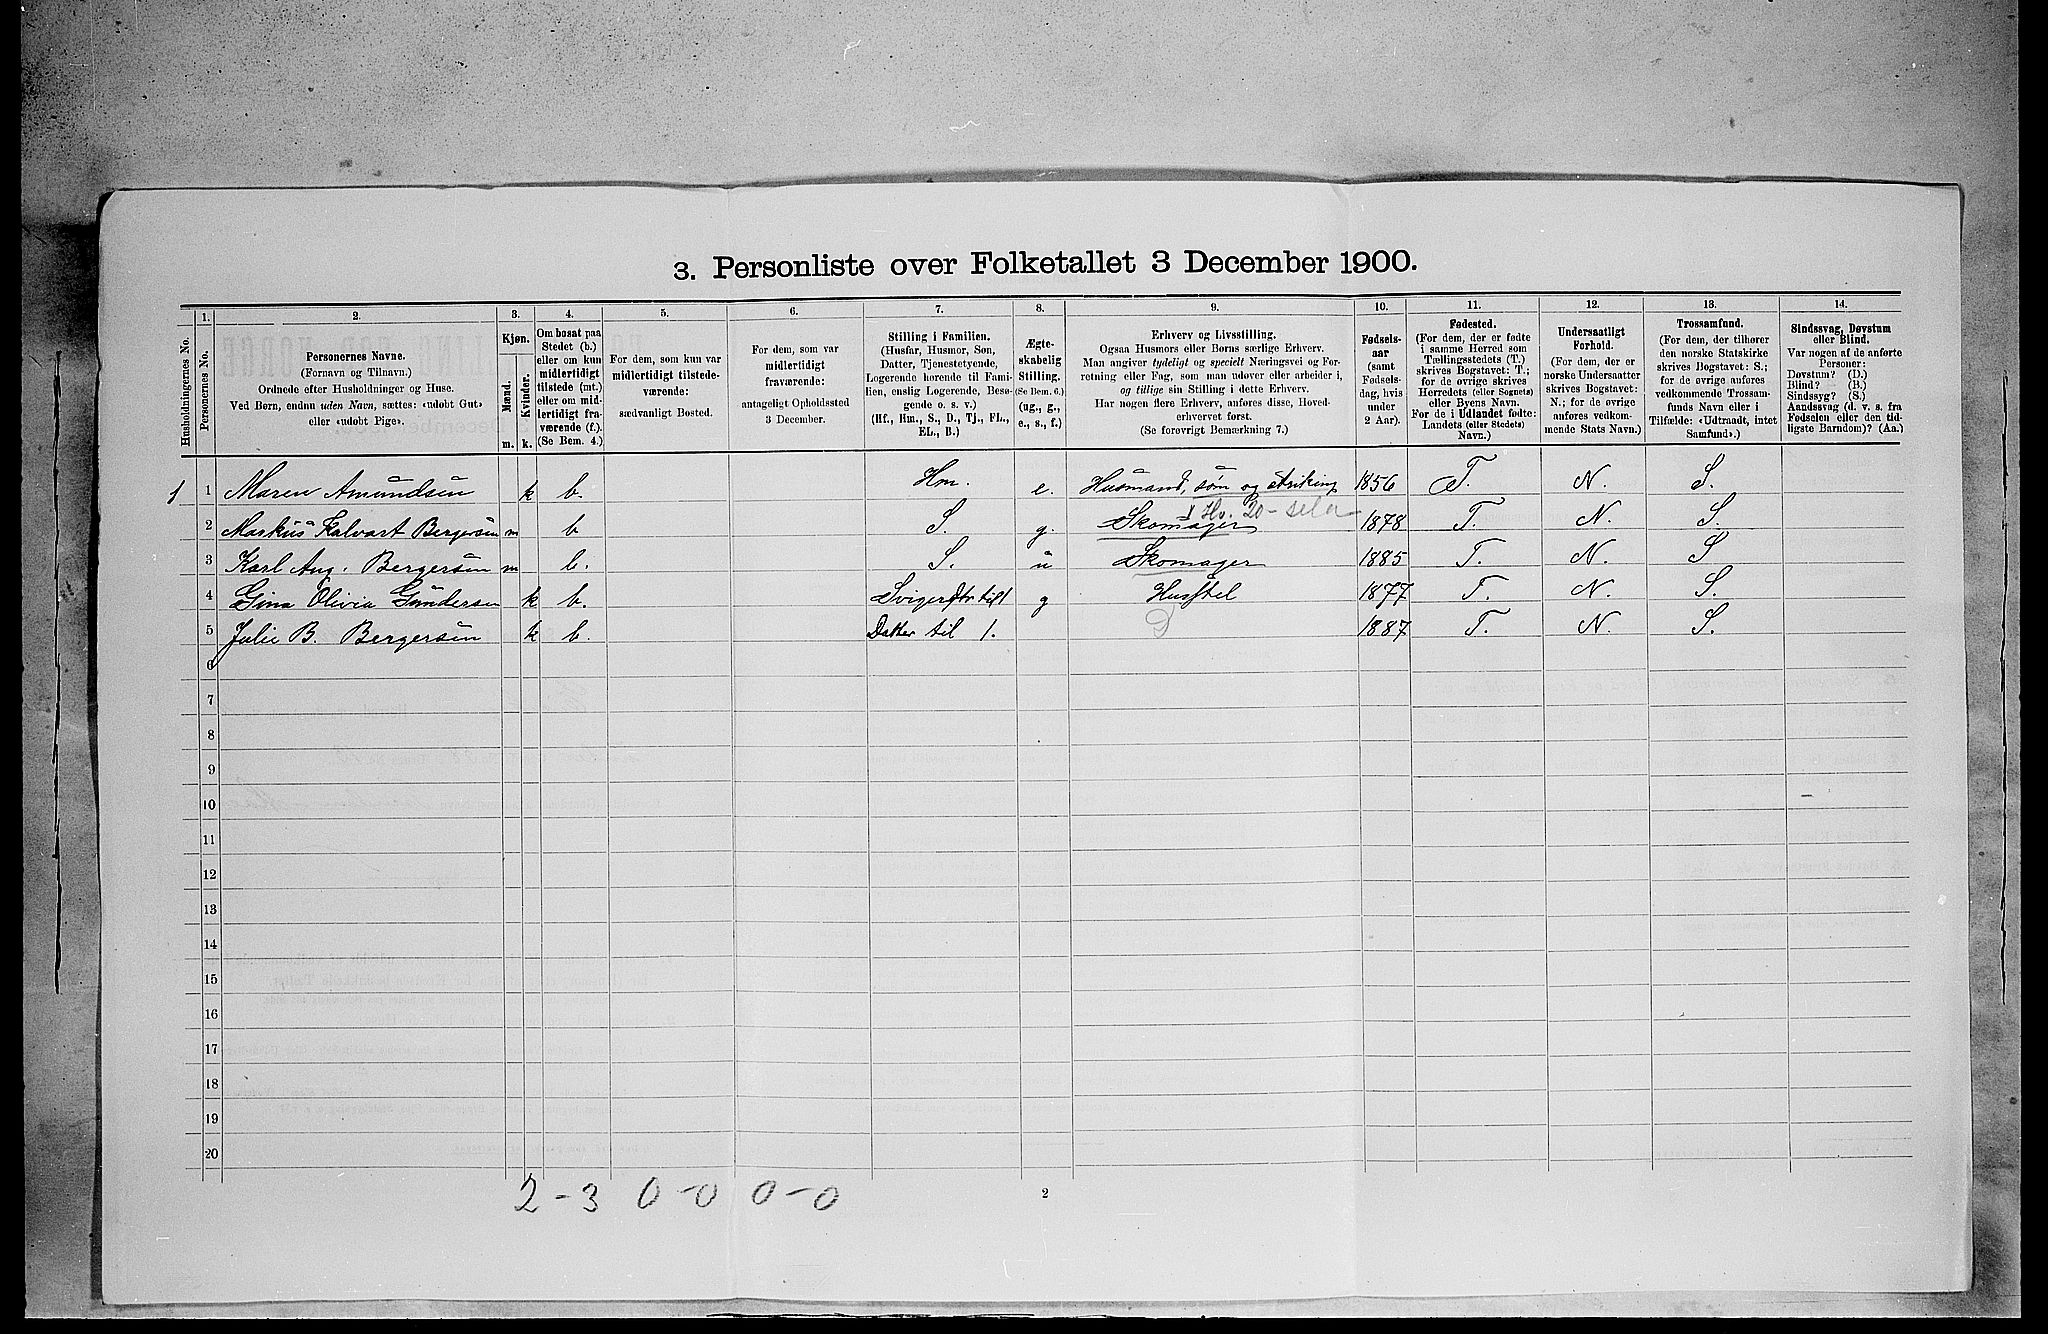 3. Personliste over Folketallet 3 December 1900.
1. 2. 3. 4. 5. 6. 7. 8. 9. 10. 11. 12. 13. 14.
Husholdningernes No.
Personernes No.
Personernes Navne.
(Fornavn og Tilnavn.)
Ordnede efter Husholdninger og Huse.
Ved Børn, endnu uden Navn, sættes: «udøbt Gut»
eller «udøbt Pige».
Kjøn.
Mænd.
Kvinder.
m. k.
Om bosat paa
Stedet (b.)
eller om kun
midlertidigt
tilstede (mt.)
eller om mid-
lertidigt fra-
værende (f.).
(Se Bem. 4.)
For dem, som kun var
midlertidigt tilstede-
værende:
sædvanligt Bosted.
For dem, som var
midlertidigt
fraværende:
antageligt Opholdssted
3 December.
Stilling i Familien.
(Husfar, Husmor, Søn,
Datter, Tjenestetyende,
Logerende hørende til Fami-
lien, enslig Logerende, Besø-
gende o. s. v.)
(Hf., Hm., S., D., Tj., FL.,
EL., B.)
Ægte-
skabelig
Stilling.
(Se Bem. 6.)
(ug., g.,
e., s., f.)
Erhverv og Livsstilling.
Ogsaa Husmors eller Børns særlige Erhverv.
Man angiver tydeligt og specielt Næringsvei og For-
retning eller Fag, som man udøver eller arbeider i,
og tillige sin Stilling i dette Erhverv.
Har nogen flere Erhverv, anføres disse, Hoved-
erhvervet først.
(Se forøvrigt Bemærkning 7.)
Fødsels-
aar
(samt
Fødsels-
dag, hvis
under
2 Aar).
Fødested.
(For dem, der er fødte
i samme Herred som
Tællingsstedets (T.)
skrives Bogstavet: T.;
for de øvrige skrives
Herredets (eller Sognets)
eller Byens Navn.
For de i Udlandet fødte:
Landets (eller Stedets)
Navn.)
Undersaatligt
Forhold.
(For dem, der er
norske Undersaatter
skrives Bogstavet:
N.; for de øvrige
anføres vedkom-
mende Stats Navn.)
Trossamfund.
(For dem, der tilhører
den norske Statskirke
skrives Bogstavet: S.;
for de øvrige anføres
vedkommende Trossam-
funds Navn eller i
Tilfælde: «Udtraadt, intet
Samfund».)
Sindssvag, Døvstum
eller Blind.
Var nogen af de anførte
Personer:
Døvstum? (D.)
Blind? (B.)
Sindssyg? (S.)
Aandssvag (d. v. s. fra
Fødselen eller den tid-
ligste Barndom)? (Aa.)
1 1 Maren Amundsen k b. Hm. e. Husmand, søm og strikning 1856 T. N. S.
2 Markus Halvart Bergersen m b S. g. Skomager 1878 T. N. S.
3 Karl Aug. Bergersen m b. S. u Skomager 1885 T. N. S
4 Gina Olivia Gundersen k b. Svigerdtr til 1 g Husstel 1877 T. N. S.
5 Julie B. Bergersen k b. Datter til 1. D 1887 T. N. S.
6
7
8
9
10
11
12
13
14
15
16
17
18
19
20
2-3 0-0 0-0
2